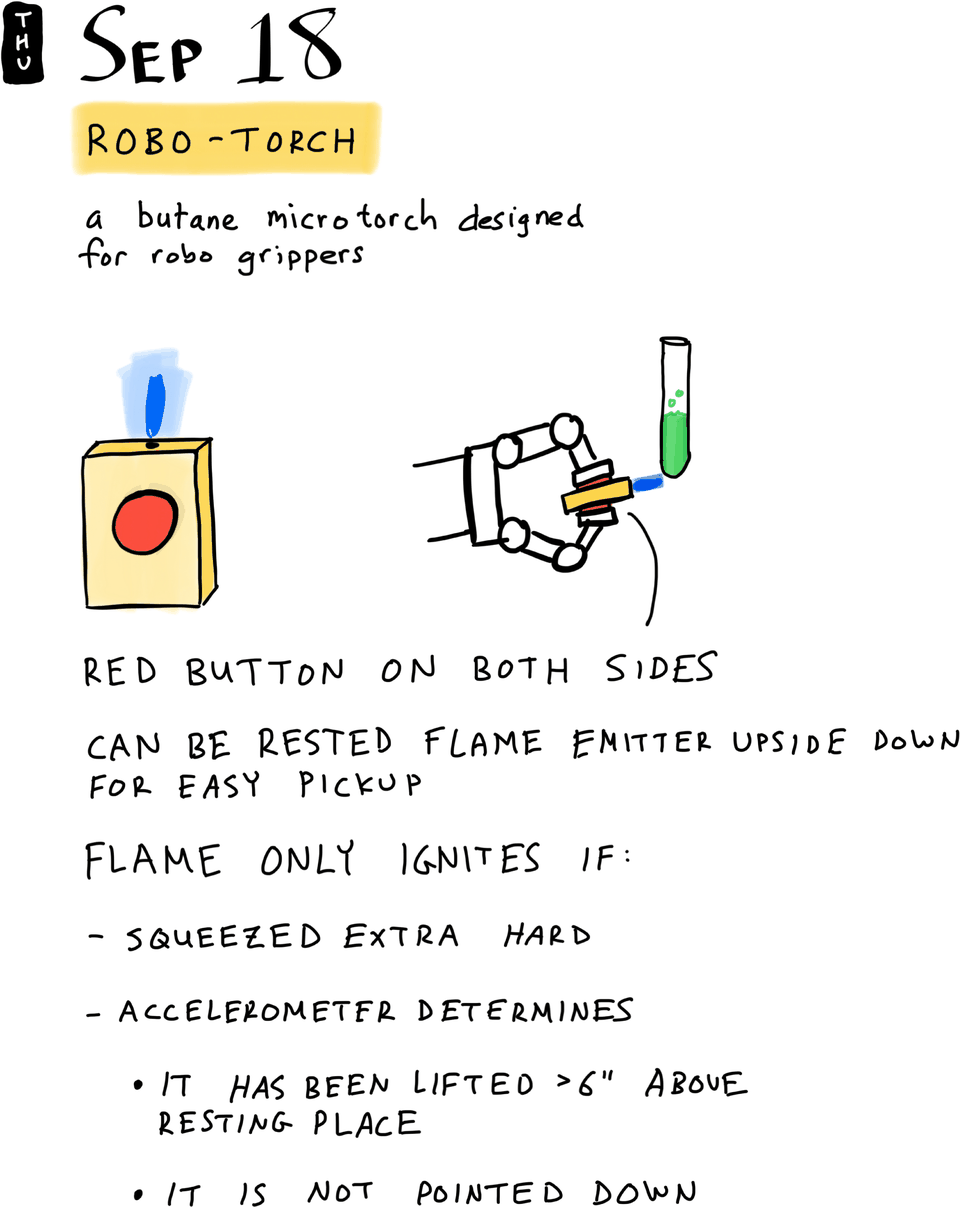 THU
SEP 18
ROBO-TORCH
a butane microtorch designed
for robo grippers
RED BUTTON ON BOTH SIDES
CAN BE RESTED FLAME EMITTER UPSIDE DOWN
FOR EASY PICKUP
FLAME ONLY IGNITES IF:
- SQUEEZED EXTRA HARD
- ACCELEROMETER DETERMINES
• IT HAS BEEN LIFTED >6" ABOVE
RESTING PLACE
• IT IS NOT POINTED DOWN